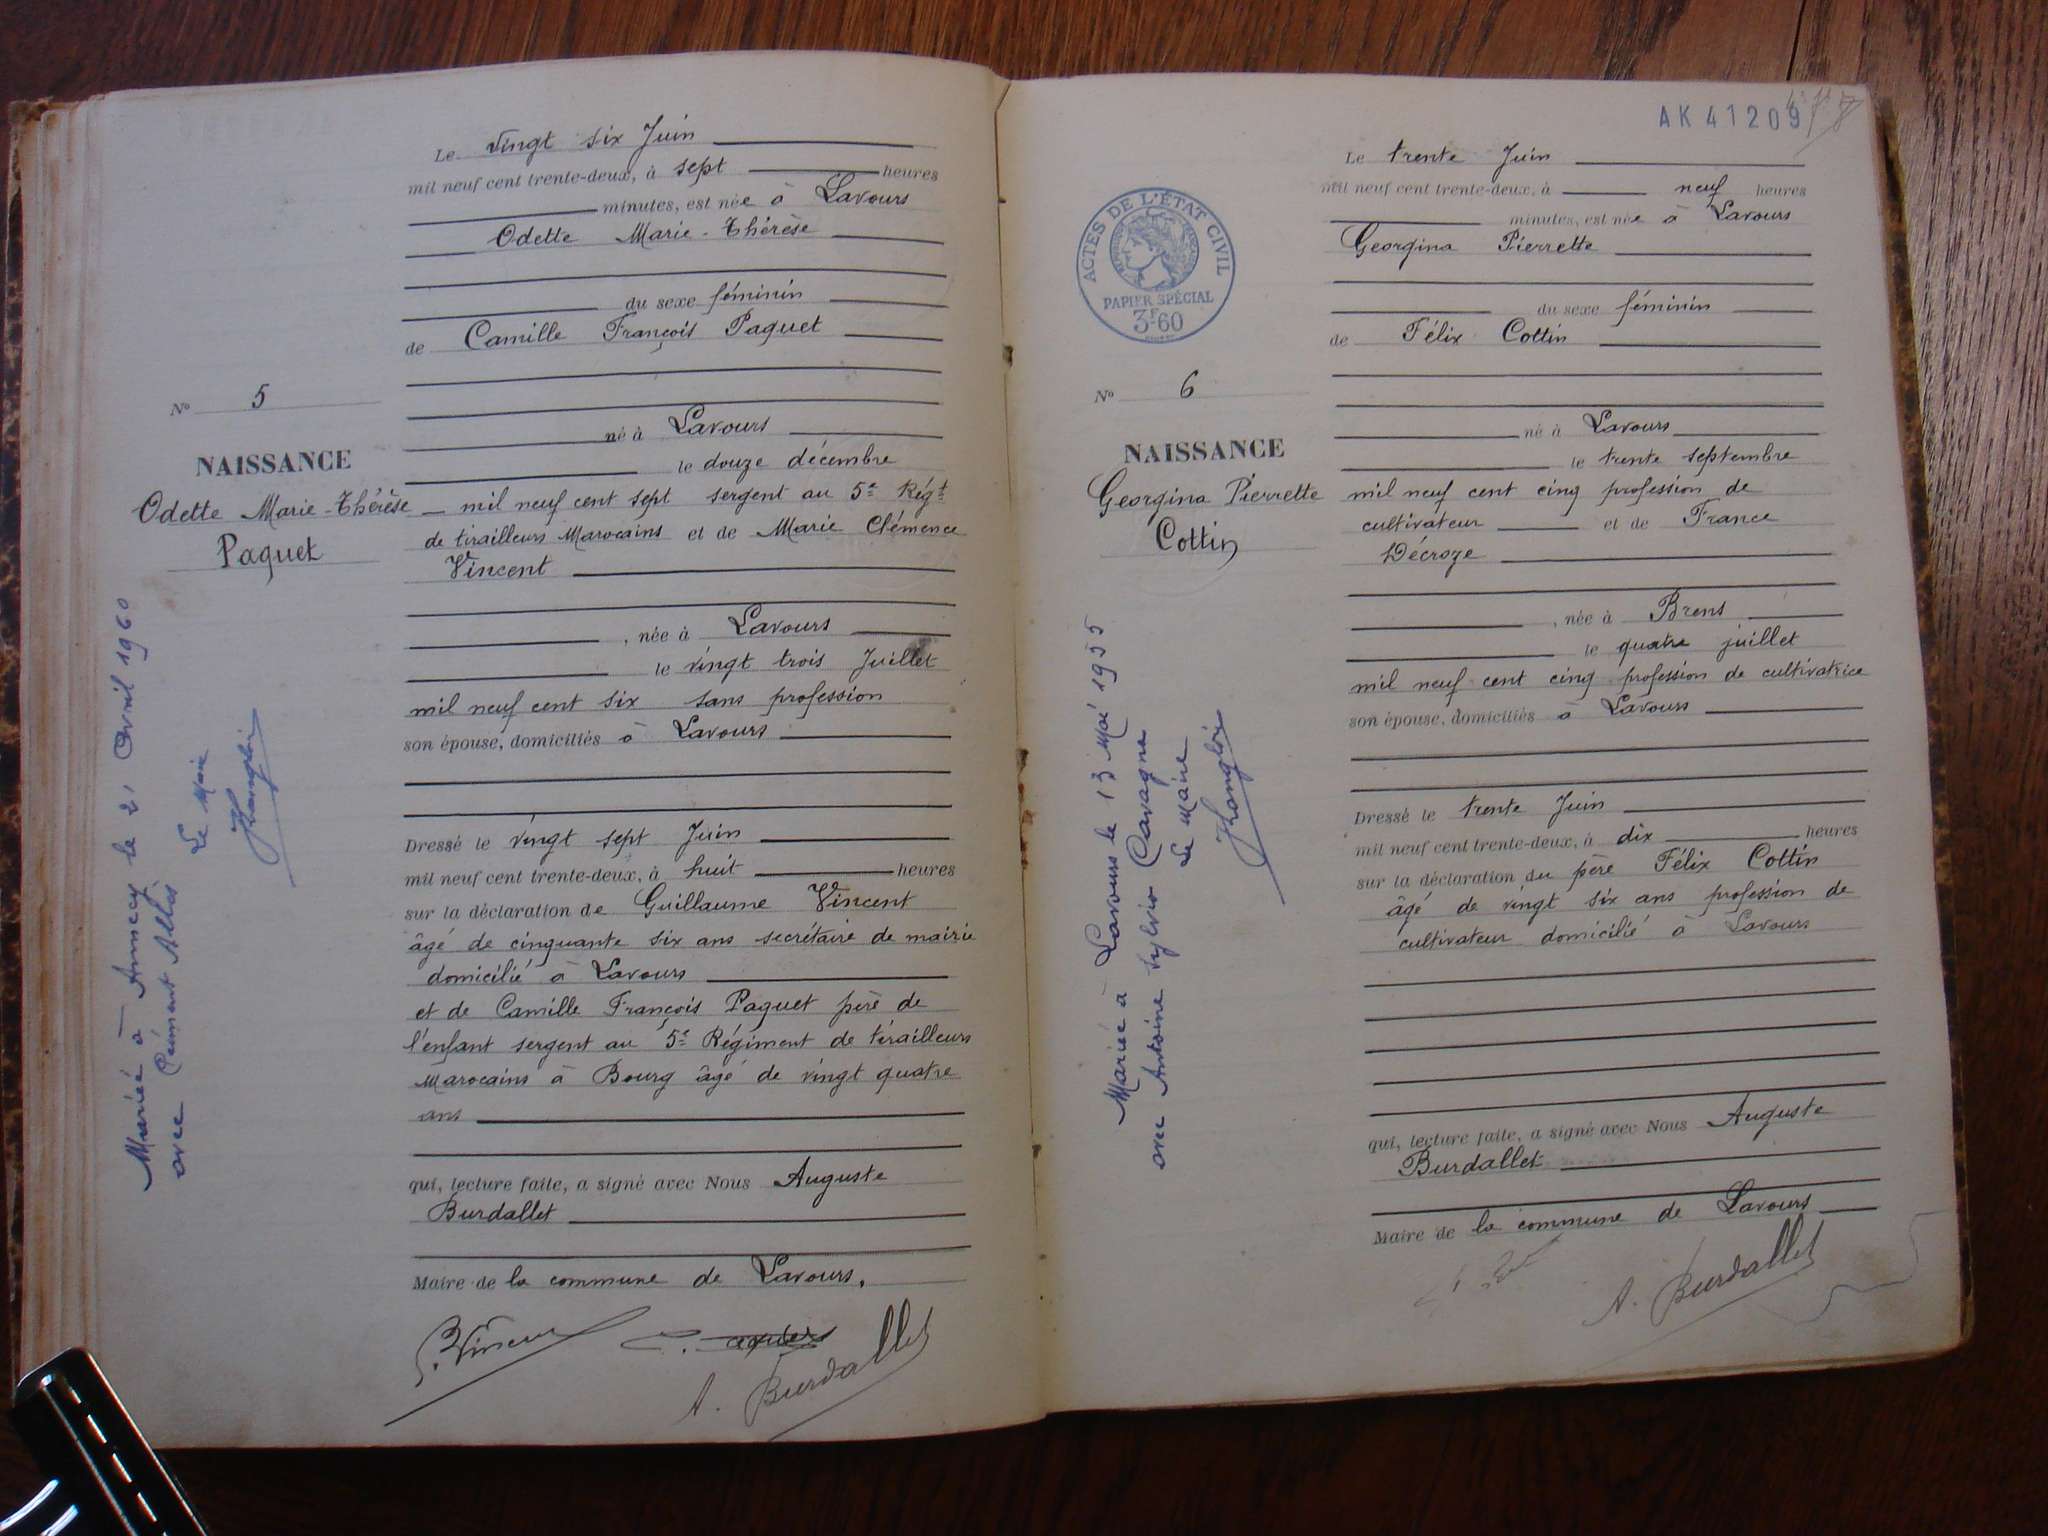 Le vingt six Juin
mil neuf cent trente-deux, à sept heures
minutes, est née à Lavours
Odette Marie-Thérèse
du sexe féminin
de Camille François Paquet
né à Lavours
le douze décembre
mil neuf cent sept sergent au 5e Régt
de tirailleurs Marocains et de Marie Clémence
Vincent
, née à Lavours
le vingt trois Juillet
mil neuf cent six sans profession
son épouse, domiciliés à Lavours
Dressé le vingt sept Juin
mil neuf cent trente-deux, à huit heures
sur la déclaration de Guillaume Vincent
âgé de cinquante six ans secrétaire de mairie
domicilié à Lavours
et de Camille François Paquet père de
l'enfant sergent au 5e Régiment de tirailleurs
Marocains à Bourg âgé de vingt quatre
ans
qui, lecture faite, a signé avec Nous Auguste
Burdallet
Maire de la commune de Lavours.
A. Burdallet
No 5
NAISSANCE
Odette Marie-Thérèse
Paquet
Mariée à Annecy le 21 Avril 1960
avec Clément
Le Maire
AK 41209
ACTES DE L'ÉTAT CIVIL
PAPIER SPÉCIAL
3F60
No 6
NAISSANCE
Georgina Pierrette
Cottin
Mariée à Lavours le 13 Mai 1955
avec Antoine Sylvio Cavagna
Le Maire
Le trente Juin
mil neuf cent trente-deux, à neuf heures
minutes, est née à Lavours
Georgina Pierrette
du sexe féminin
de Félix Cottin
né à Lavours
le trente septembre
mil neuf cent cinq profession de
cultivateur et de France
Décroze
, née à Brens
le quatre juillet
mil neuf cent cinq profession de cultivatrice
son épouse, domiciliés à Lavours
Dressé le trente Juin
mil neuf cent trente-deux, à dix heures
sur la déclaration du père Félix Cottin
âgé de vingt six ans profession de
cultivateur domicilié à Lavours
qui, lecture faite, a signé avec Nous Auguste
Burdallet
Maire de la commune de Lavours
A. Burdallet